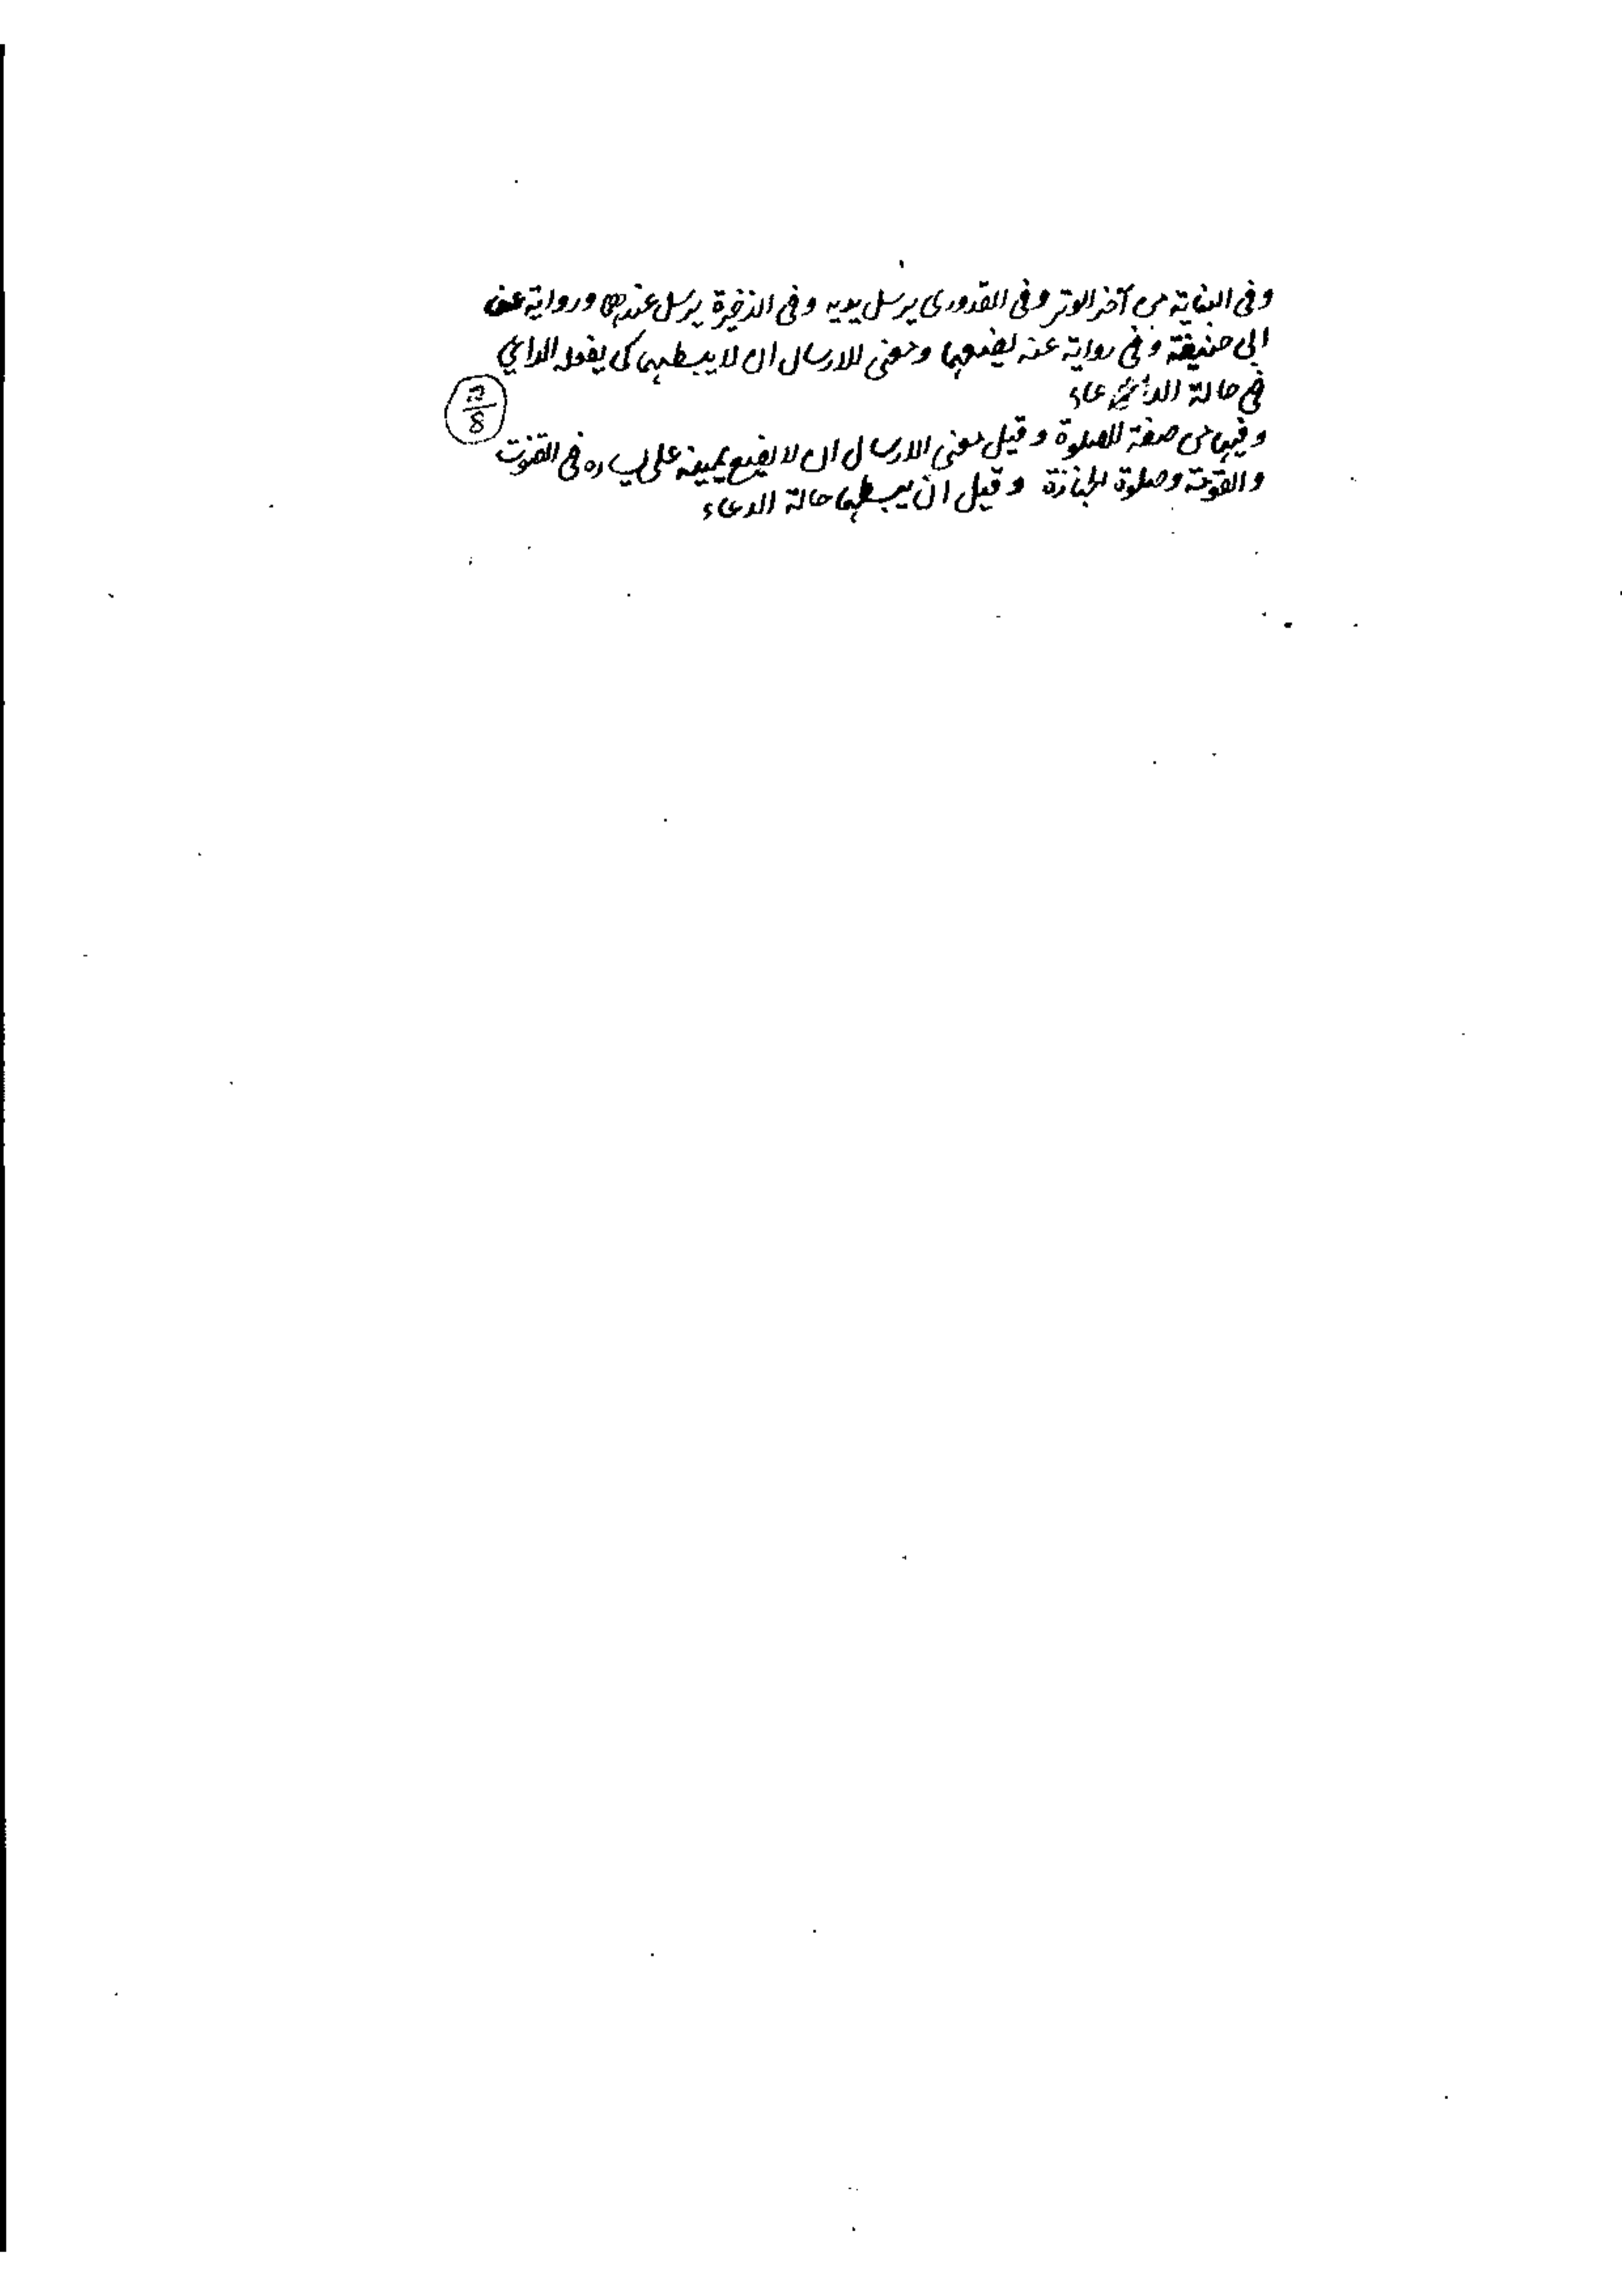 وفى البناية من آخر الوتر وفى القدورى يرسل يديه وفى الذخيرة يرسل عندهما ورواية عن
ابى حنيفة وفى رواية عنه يضعهما ومعنى الارسال ان لا يبسطهما كى يفعل الداعى
فى حالة الدعاء
وفيها من صفة الصلوة وقيل معنى الارسال ان لا يضع يمينه على يساره فى القنوت
والقومة وصلوة الجنازة وقيل ان يبسطهما حالة الدعاء